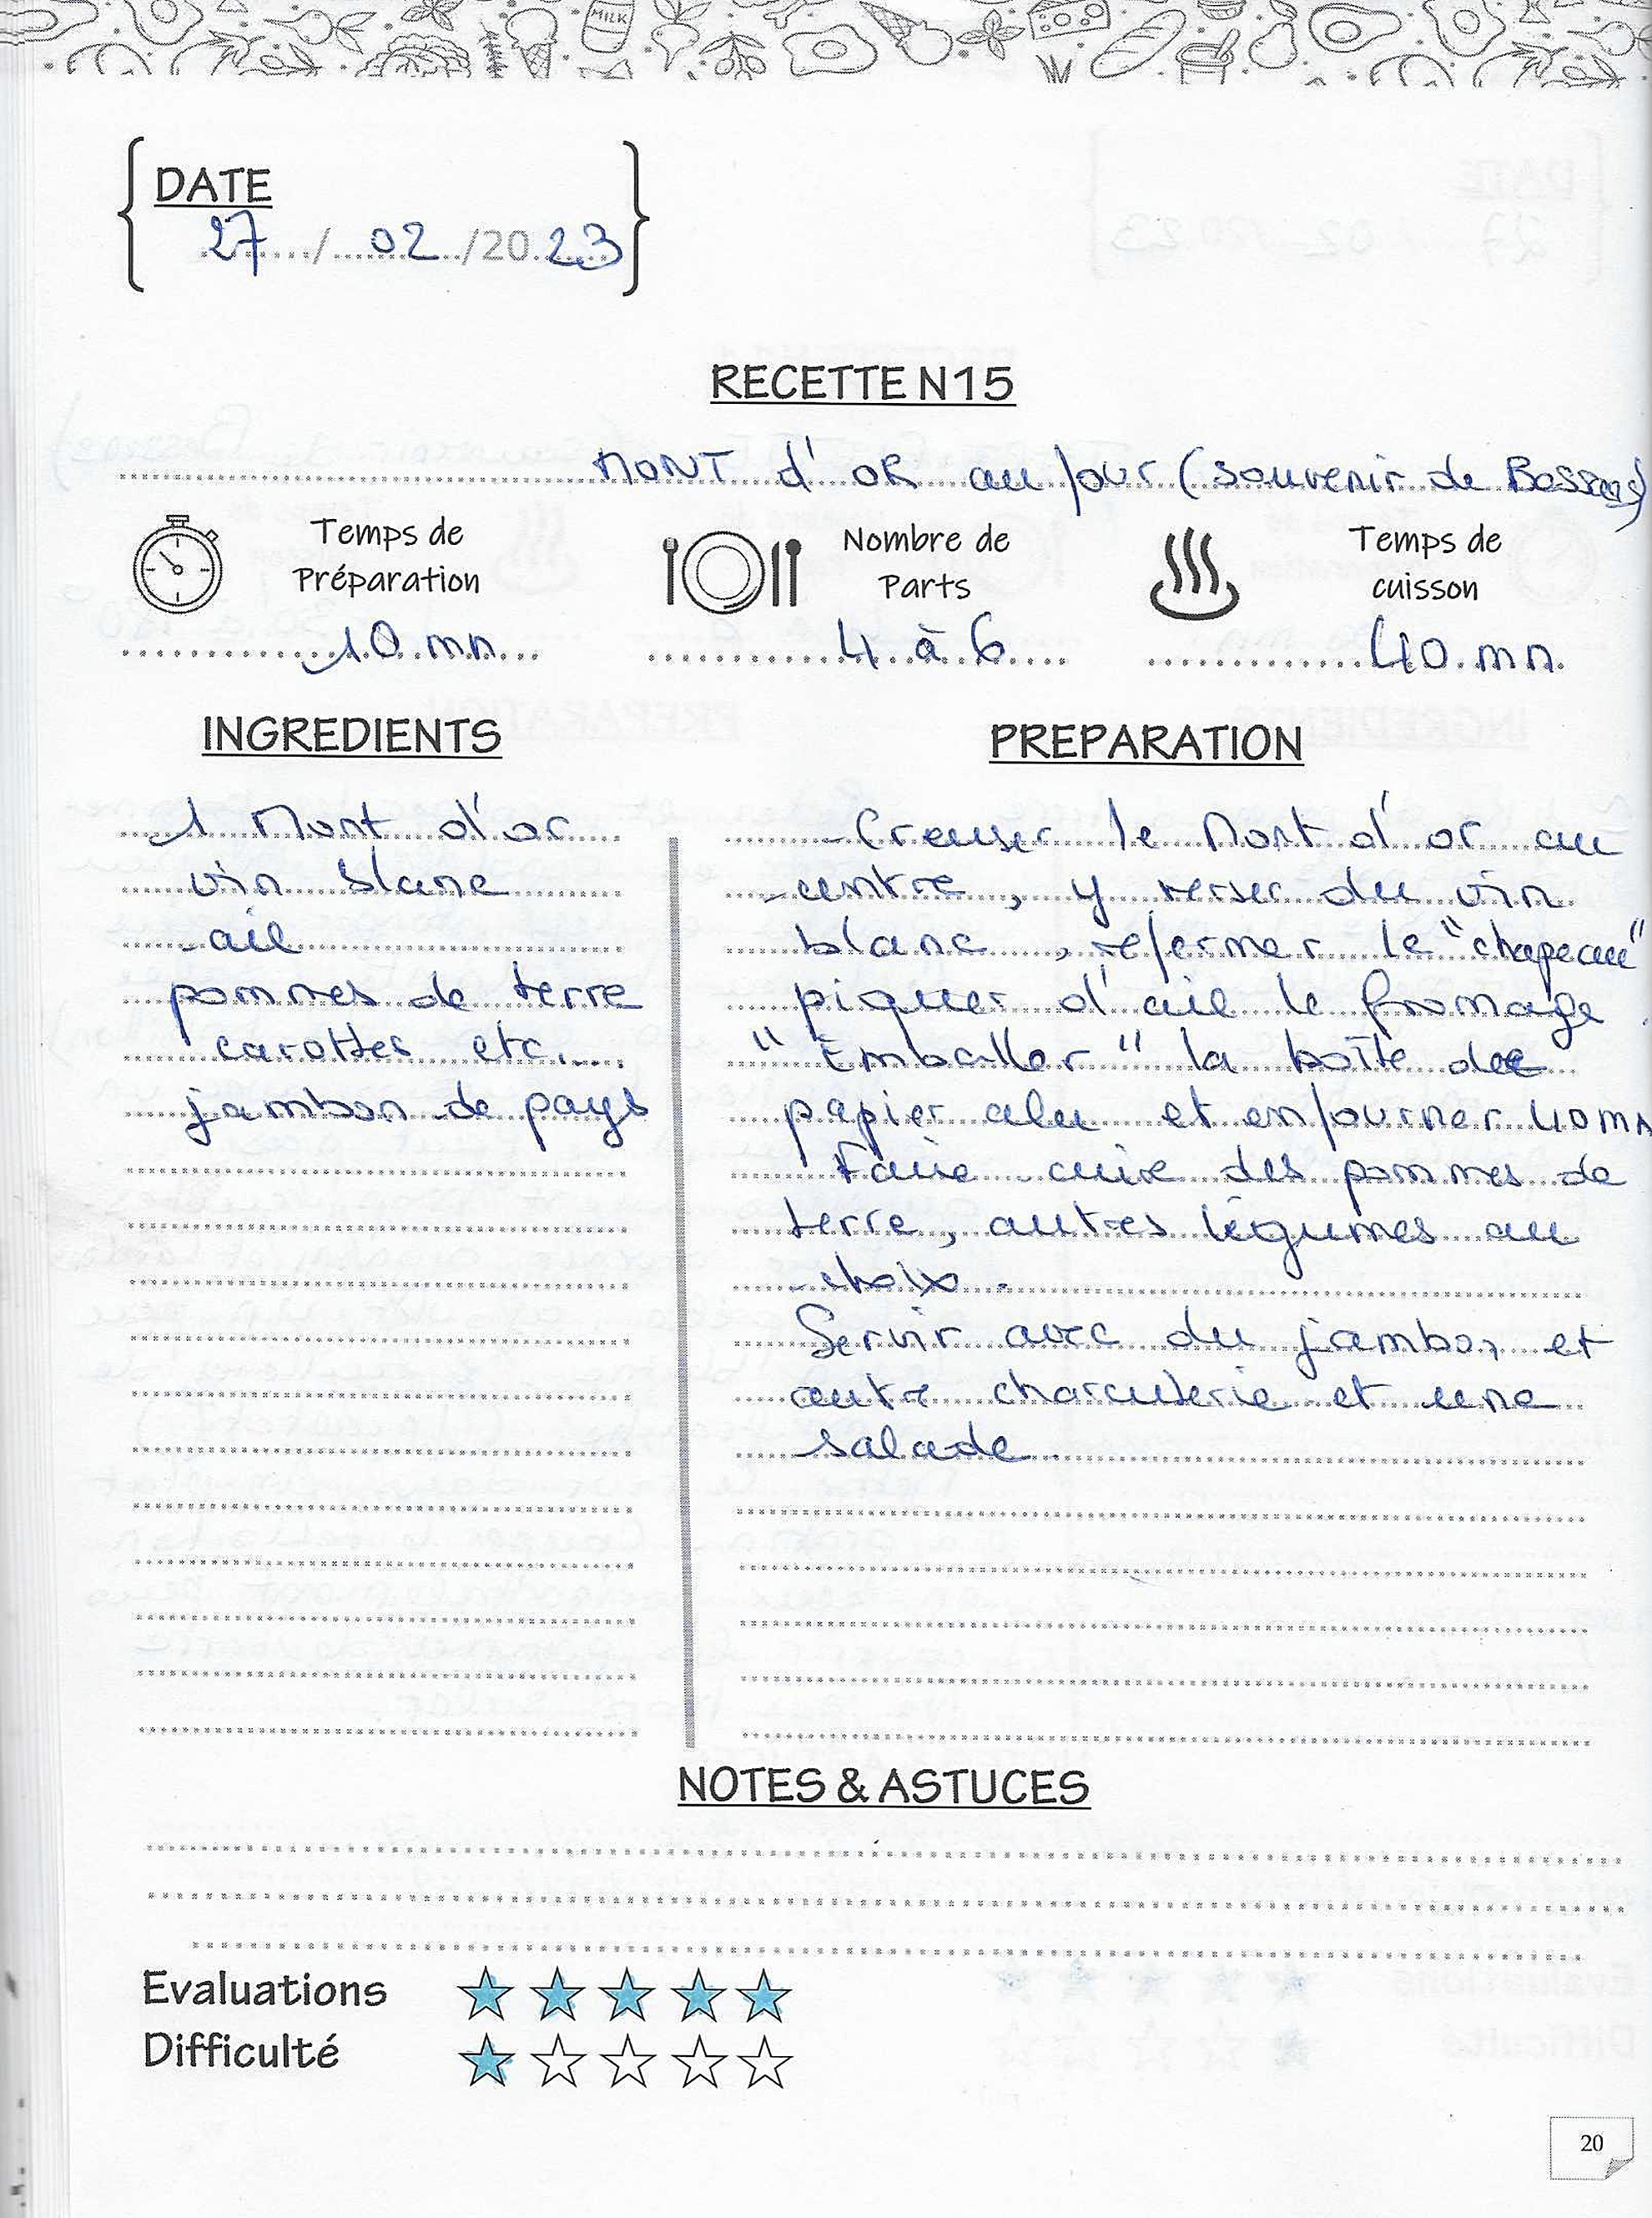 MILK
DATE
27 / 02 /2023
RECETTE N15
MONT d'OR au four (souvenir de
Temps de Préparation
10 mn
Nombre de Parts
4 à 6
Temps de cuisson
40 mn
INGREDIENTS
1 Mont d'or
vin blanc
ail
pommes de terre
carottes etc...
jambon de pays
PREPARATION
Creuser le Mont d'or au
centre, y verser du vin
blanc, refermer le "chapeau"
piquer d'ail le fromage
"Emballer" la boîte de
papier alu et enfourner 40 mn
Faire cuire des pommes de
terre, autres légumes au
choix.
Servir avec du jambon et
autre charcuterie et une
salade.
NOTES & ASTUCES
Evaluations
Difficulté
20